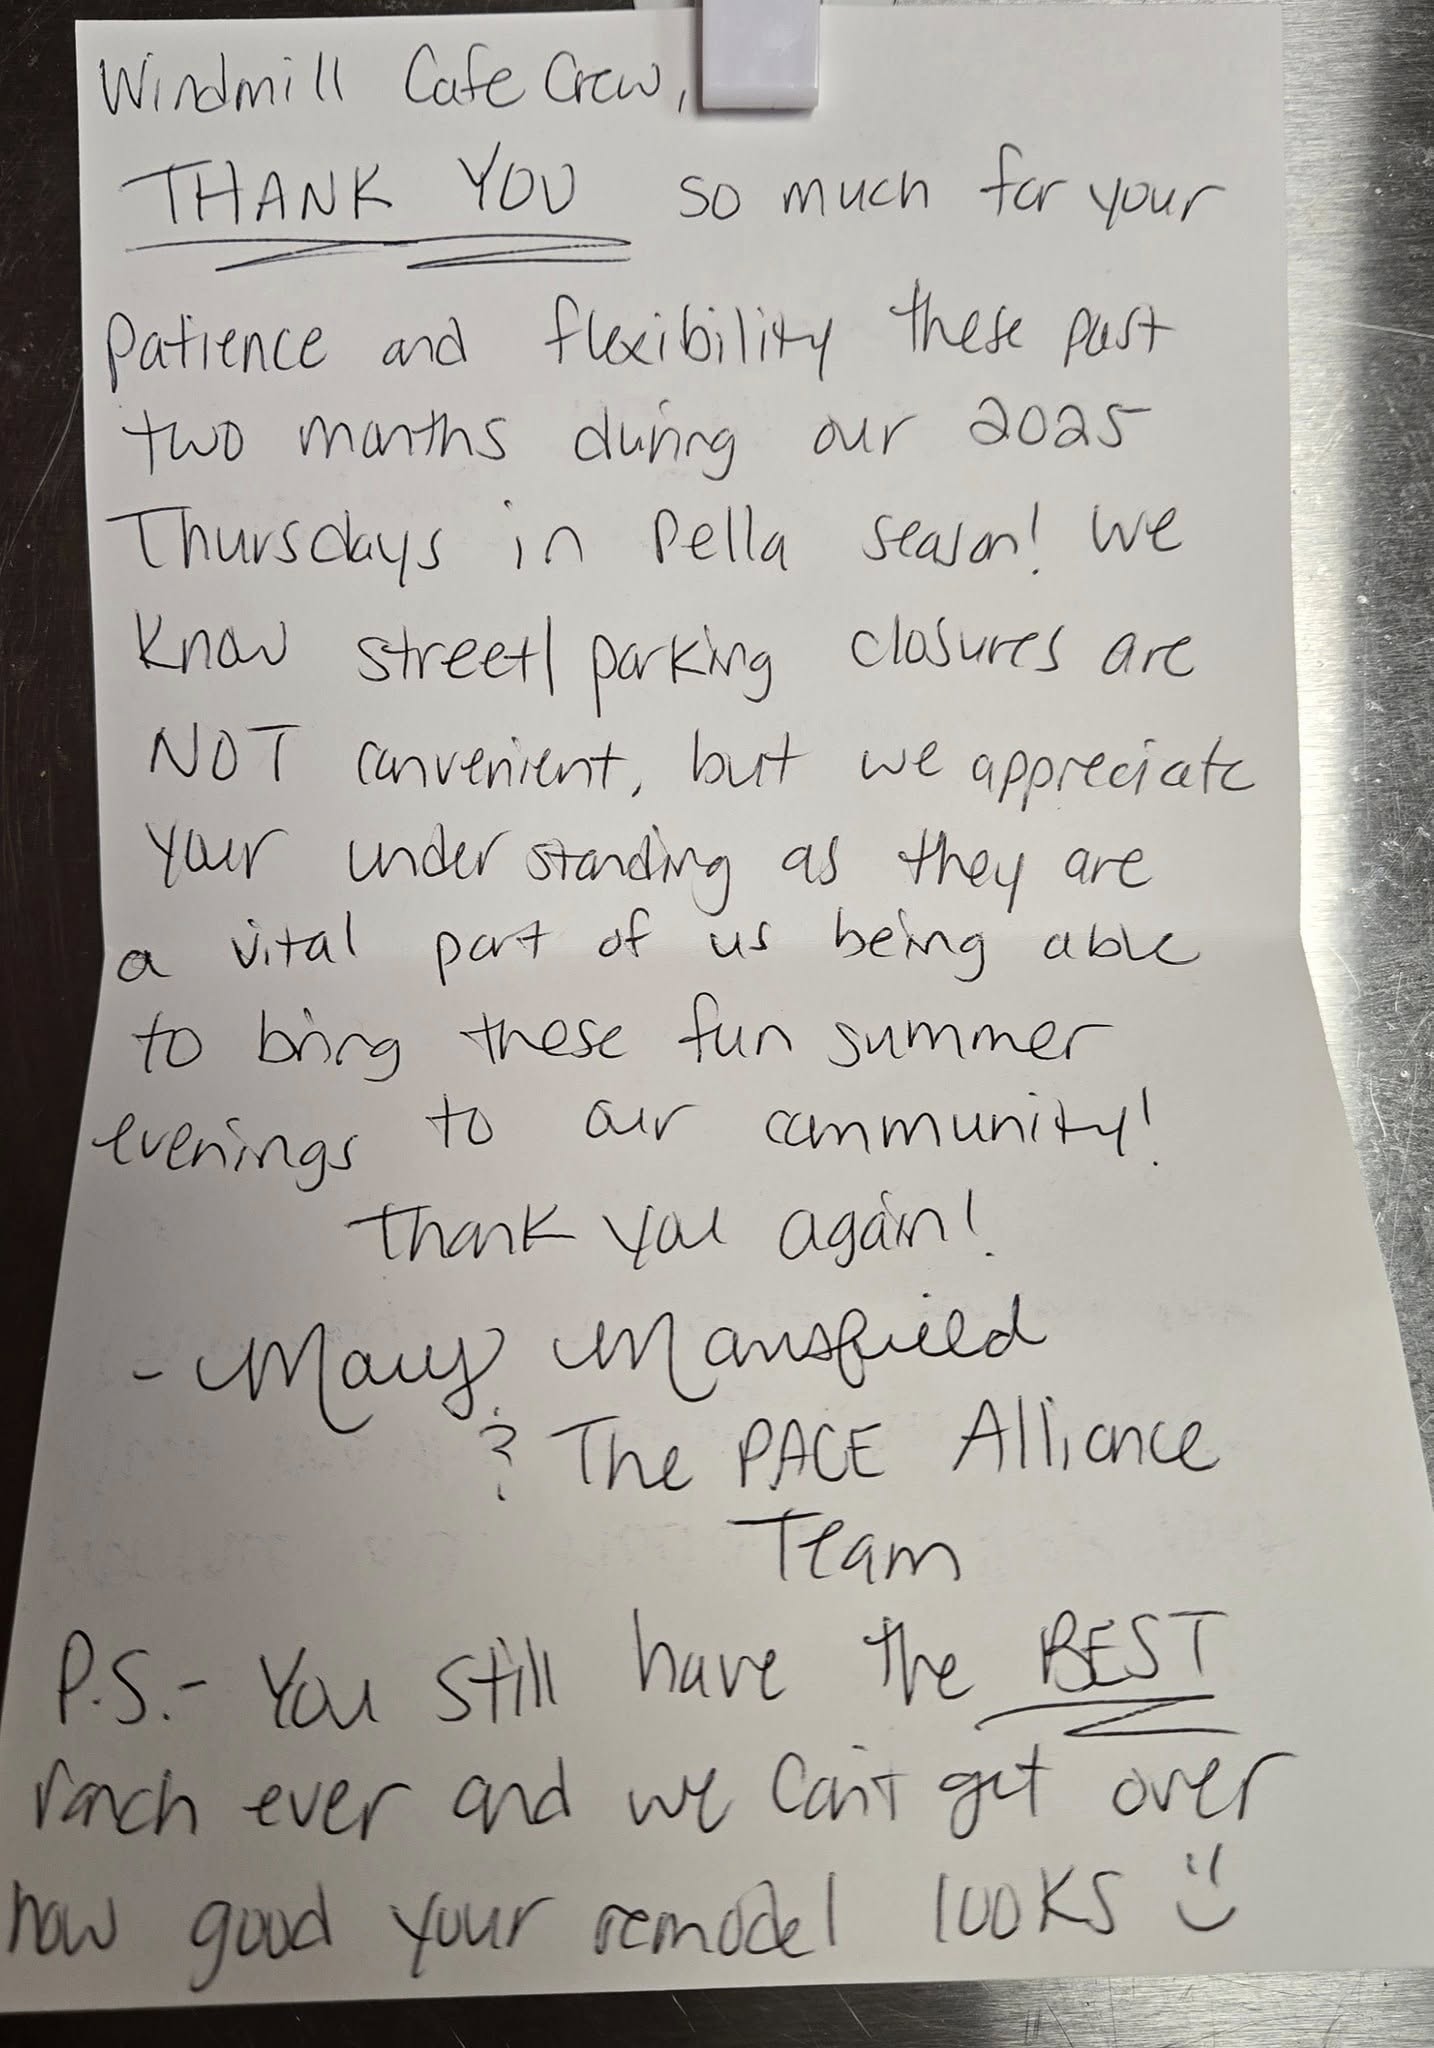 Windmill Cafe Crew,
THANK YOU so much for your
patience and flexibility these past
two months during our 2025
Thursdays in Pella season! We
know street/parking closures are
NOT convenient, but we appreciate
your understanding as they are
a vital part of us being able
to bring these fun summer
evenings to our community!
Thank you again!
- Mary Mansfield
& The PACE Alliance
Team
P.S.- You still have the BEST
ranch ever and we can't get over
how good your remodel looks :)